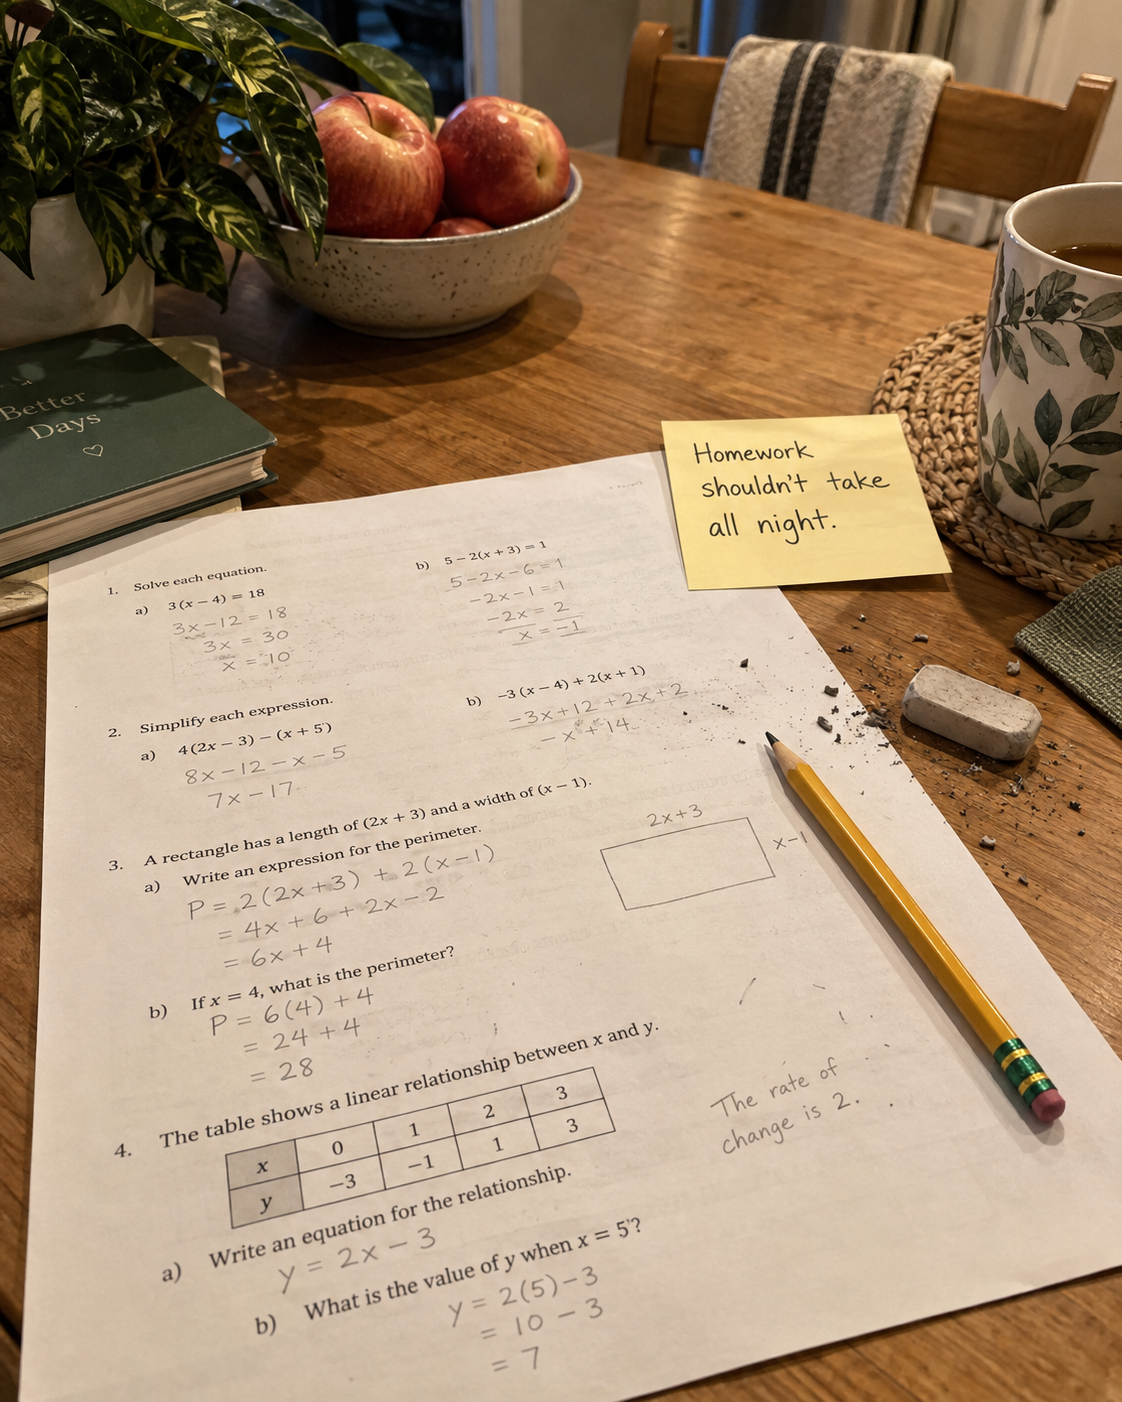 Better
Days
Homework
shouldn't take
all night.
1. Solve each equation.
a) 3(x − 4) = 18
3x − 12 = 18
3x = 30
x = 10
b) 5 − 2(x + 3) = 1
5 − 2x − 6 = 1
−2x − 1 = 1
−2x = 2
x = −1
2. Simplify each expression.
a) 4(2x − 3) − (x + 5)
8x − 12 − x − 5
7x − 17
b) −3(x − 4) + 2(x + 1)
−3x + 12 + 2x + 2
−x + 14
3. A rectangle has a length of (2x + 3) and a width of (x − 1).
a) Write an expression for the perimeter.
P = 2(2x + 3) + 2(x − 1)
= 4x + 6 + 2x − 2
= 6x + 4
2x + 3
x − 1
b) If x = 4, what is the perimeter?
P = 6(4) + 4
= 24 + 4
= 28
4. The table shows a linear relationship between x and y.
x 0 1 2 3
y −3 −1 1 3
The rate of
change is 2.
a) Write an equation for the relationship.
y = 2x − 3
b) What is the value of y when x = 5?
y = 2(5) − 3
= 10 − 3
= 7